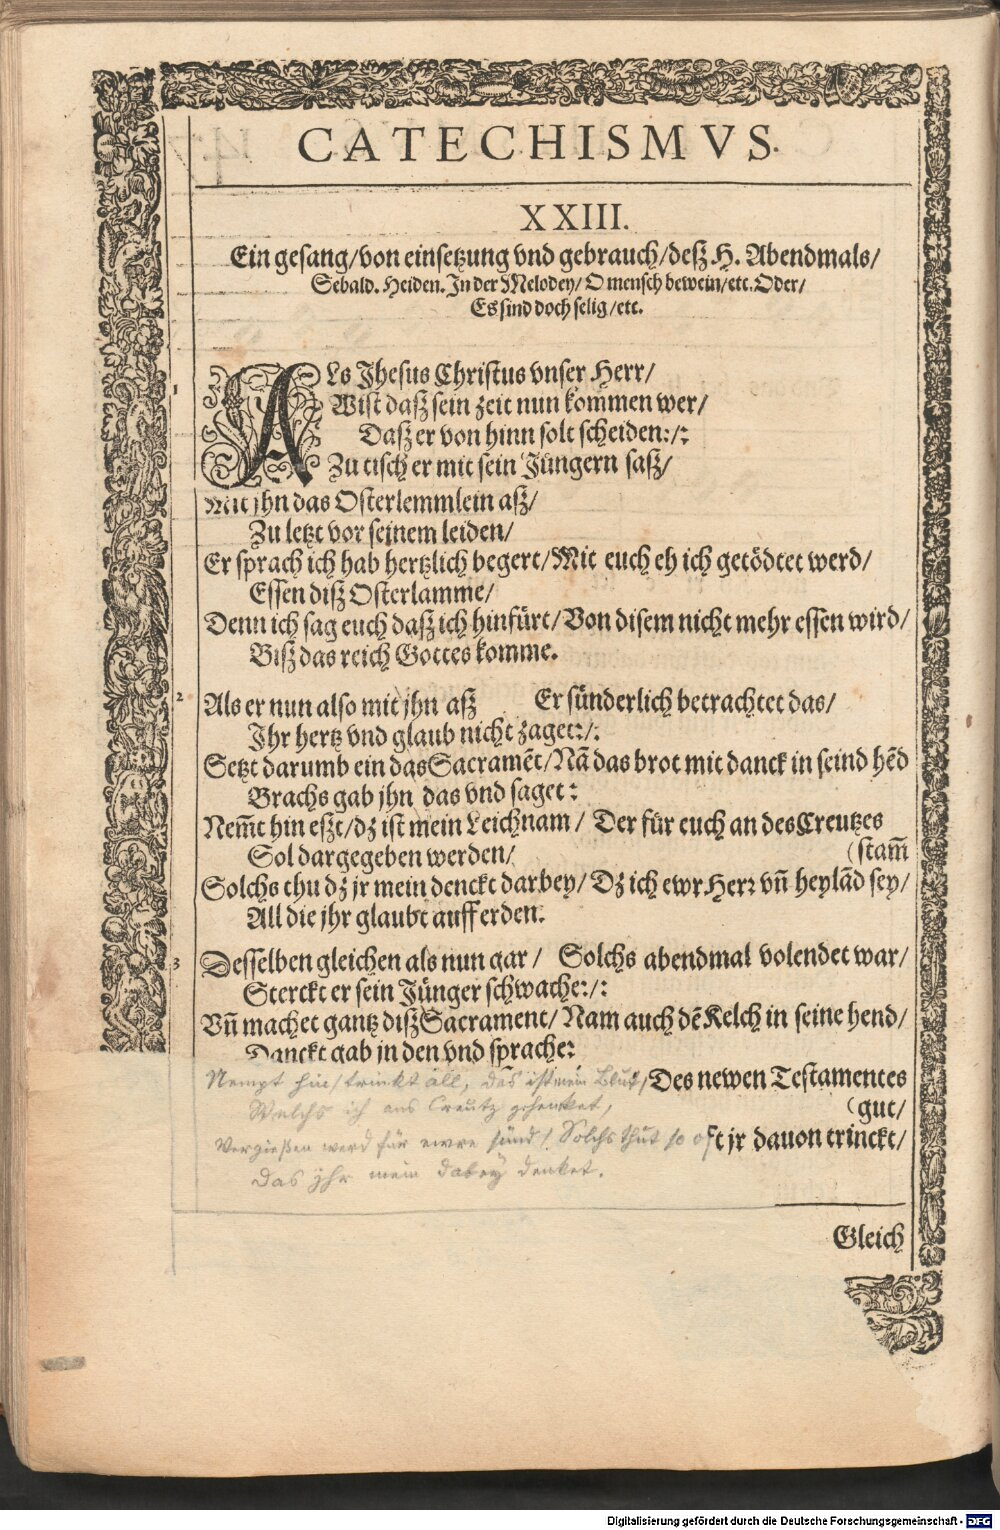 CATECHISMVS.
XXIII.
Ein gesang/von einsetzung vnd gebrauch/desz H. Abendmals/
Sebald. Heiden. In der Melodey/ O mensch bewein/etc. Oder/
Es sind doch selig/etc.
1 ALs Jhesus Christus vnser Herr/
Wist dasz sein zeit nun kommen wer/
Dasz er von hinn solt scheiden:/:
Zu tisch er mit sein Jüngern sasz/
Mit jhn das Osterlemmlein asz/
Zu letzt vor seinem leiden/
Er sprach ich hab hertzlich begert/Mit euch eh ich getödtet werd/
Essen disz Osterlamme/
Denn ich sag euch dasz ich hinfürt/Von disem nicht mehr essen wird/
Bisz das reich Gottes komme.
2 Als er nun also mit jhn asz Er sünderlich betrachtet das/
Ihr hertz vnd glaub nicht zaget:/:
Setzt darumb ein das Sacramēt/Nā das brot mit danck in seind hēd
Brachs gab jhn das vnd saget:
Nem̄t hin eszt/dz ist mein Leichnam/ Der für euch an des Creutzes
Sol dargegeben werden/ (stam̄
Solchs thu dz jr mein denckt darbey/ Dz ich ewr Herr vn̄ heylād sey/
All die jhr glaubt auff erden.
3 Desselben gleichen als nun gar/ Solchs abendmal volendet war/
Sterckt er sein Jünger schwache:/:
Vn̄ machet gantz disz Sacrament/Nam auch dē Kelch in seine hend/
Danckt gab jn den vnd sprache:
Nempt hin/trinkt all, das ist mein Blut/Des newen Testamentes
Welchs ich ans Creutz gehenket, (gut/
Vergießen werd für ewre sünd/ Solchs thut so oft jr dauon trinckt/
Das jhr mein dabey denket.
Gleich
Digitalisierung gefördert durch die Deutsche Forschungsgemeinschaft - DFG